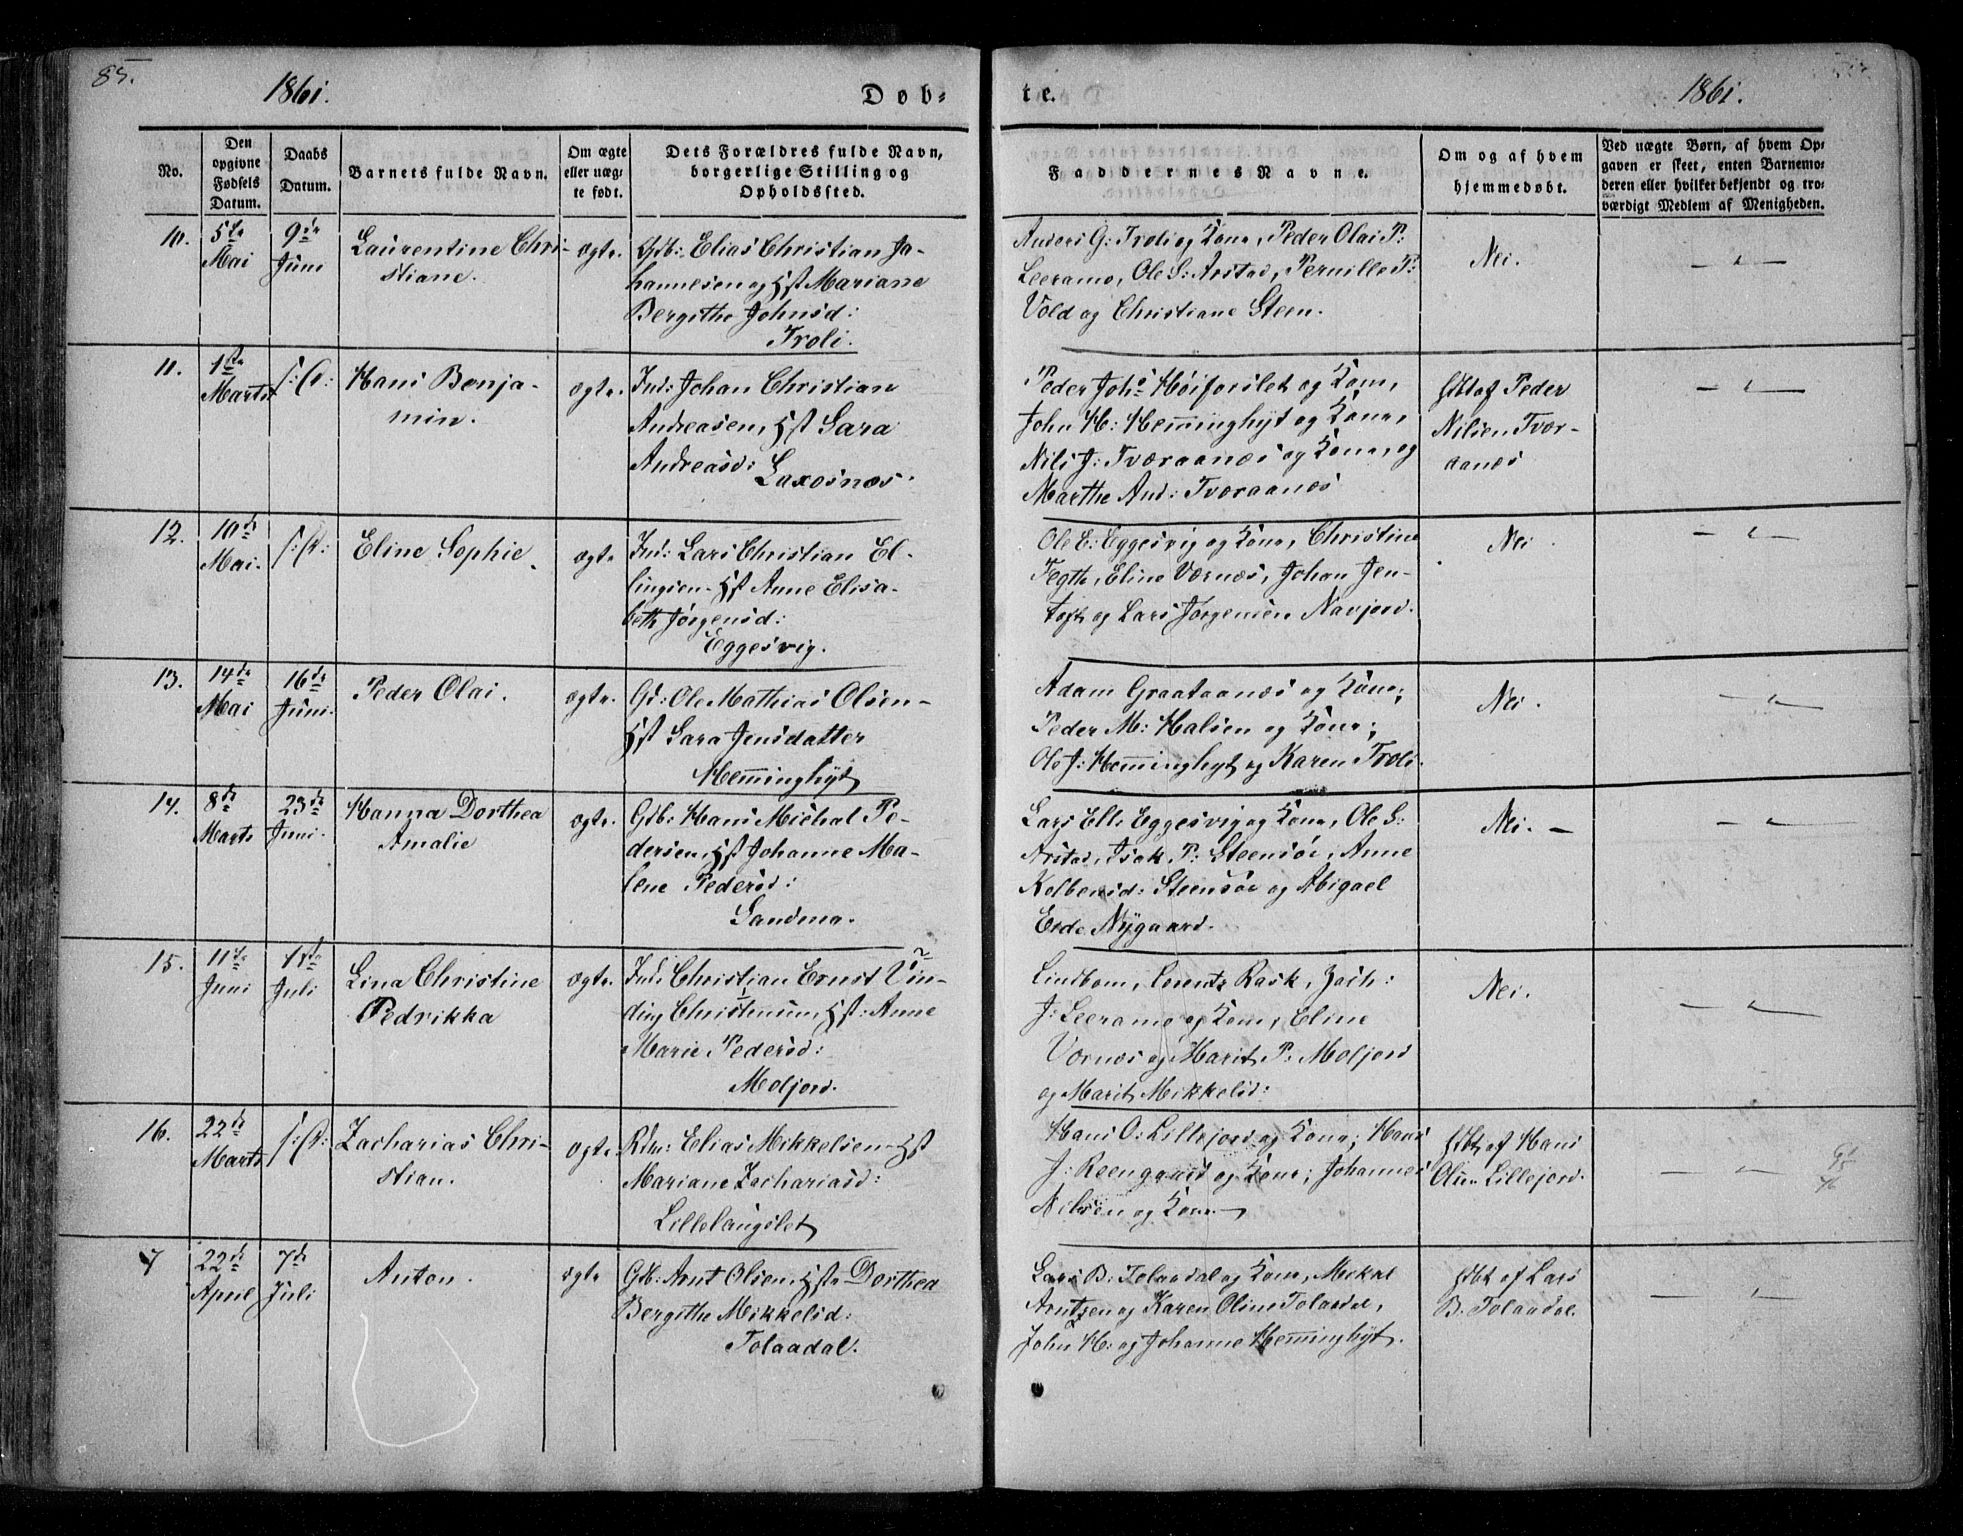 85.
1861.
Døb-
te.
1861.
No.
Den opgivne Fødsels Datum.
Daabs Datum.
Barnets fulde Navn.
Om ægte eller uægte født.
Dets Forældres fulde Navn, borgerlige Stilling og Opholdssted.
Faddernes Navne.
Om og af hvem hjemmedøbt.
Ved uægte Børn, af hvem Opgaven er skeet, enten Barnemoderen eller hvilket bekjendt og troværdigt Medlem af Menigheden.
10.
5te Mai
9de Juni
Laurentine Chri-
stiane.
ægte
Gdb: Elias Christian Jo-
hannesen og Hst Mariane
Bergithe Johnsd:
Troli.
Anders G: Troli og Kone, Peder Olai P:
Leeramo, Ole S: Arstad, Pernille P:
Vold og Christiane Steen.
Nei.
11.
1ste Marts
s: D:
Hans Benja-
min.
ægte
Ind: Johan Christian
Andreasen, Hst Sara
Andreasd: Laxosnæs.
Peder Johs Høiforslet og Kone,
John H: Hemminghyt og Kone,
Nils J: Tværaanæs og Kone, og
Marthe And: Tværaanæs
Hdbt af Peder
Nilsen Tvær-
aanæs
12.
10de Mai.
s: D:
Eline Sophie
ægte
Ind: Lars Christian El-
lingsen - Hst Anne Elisa-
beth Jørgensd:
Eggesvig.
Ole E: Eggesvig og Kone, Christine
Fegth, ElineVærnæs, Johan Jen-
toft og Lars Jørgensen Navjord.
Nei
13.
14de Mai
16de Juni.
Peder Olai.
ægte.
Gd: Ole Mathias Olsen -
Hst Sara Jensdatter
Hemminghyt
Adam Graataanæs og Kone;
Peder M: Halsen og Kone;
Ole J: Hemminghyt og Karen Troli.
Nei.
14.
8de Marts
23de Juni.
Hanna Dorthea
Amalie
ægte.
Gdb: Hans Michal Pe-
dersen, Hst Johanne Ma-
lene Pedersd:
Sandmo.
Lars Ell: Eggesvig og Kone, Ole S:
Arstad, Isak P: Steensøe, Anne
Kolbensd: Steensøe og Abigael
Erde Nygaard.
Nei. -
15.
11te Juni
Juli
Lina Christine
Pedrikka
ægte.
Ind: Christian Ernst Vin-
ding Christensen, Hst: Anne
Marie Pedersd:
Moljord.
Lindbom, Lorents Rask, Zach:
J: Leeramo og Kone, Eline
Værnæs og Marit P: Moljord
og Marit Mikkelsd:
Nei.
16.
22de Marts
s: D:
Zacharias Chri-
stian.
ægte
Rdm: Elias Mikkelsen - Hst
Mariane Zachariasd:
Lillelangslet
Hans O: Lillejord og Kone; Hans
J: Reengaard og Kone; Johannes
Nilsen og Kone
Hdbt af Hans
Olsen Lillejord.
7
22de April
7de Juli
Anton.
ægte
Gdb: Arnt Olsen, Hst Dorthea
Bergithe Mikkelsd:
Tolaadal.
Lars B. Tolaadal og Kone, Mikal
Arntzen og Karen Oline Tolaadal,
John H: og Johanne Hemminghyt.
Hdbt af Lars
B. Tolaadal.